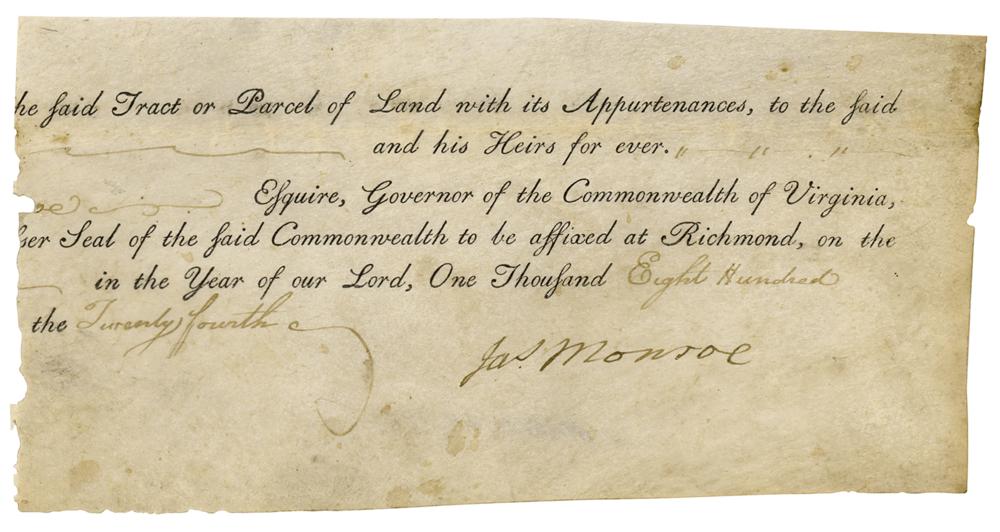 he said Tract or Parcel of Land with its Appurtenances, to the said
and his Heirs for ever. " " . "
oe Esquire, Governor of the Commonwealth of Virginia,
ser Seal of the said Commonwealth to be affixed at Richmond, on the
in the Year of our Lord, One Thousand Eight Hundred
the Twenty fourth
Jas Monroe